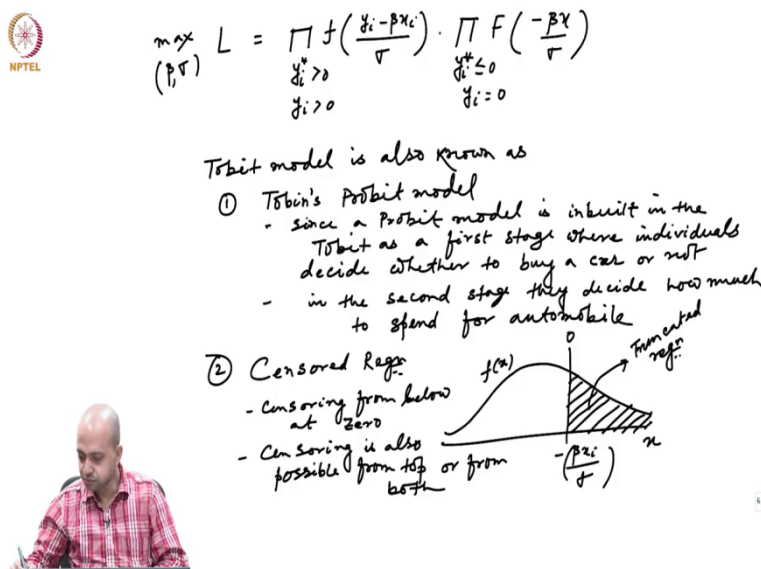 NPTEL
max L = ∏ f((yᵢ - βxᵢ)/σ) · ∏ F(-βx/σ)
(β,σ) yᵢ* > 0 yᵢ* ≤ 0
yᵢ > 0 yᵢ = 0
Tobit model is also known as
① Tobin's Probit model
- since a Probit model is inbuilt in the
Tobit as a first stage where individuals
decide whether to buy a car or not
- in the second stage they decide how much
to spend for automobile
② Censored Regn.
- Censoring from below
at zero
- Censoring is also
possible from top or from
both
f(x)
0
Truncated
regn.
x
-(βxᵢ/σ)
6